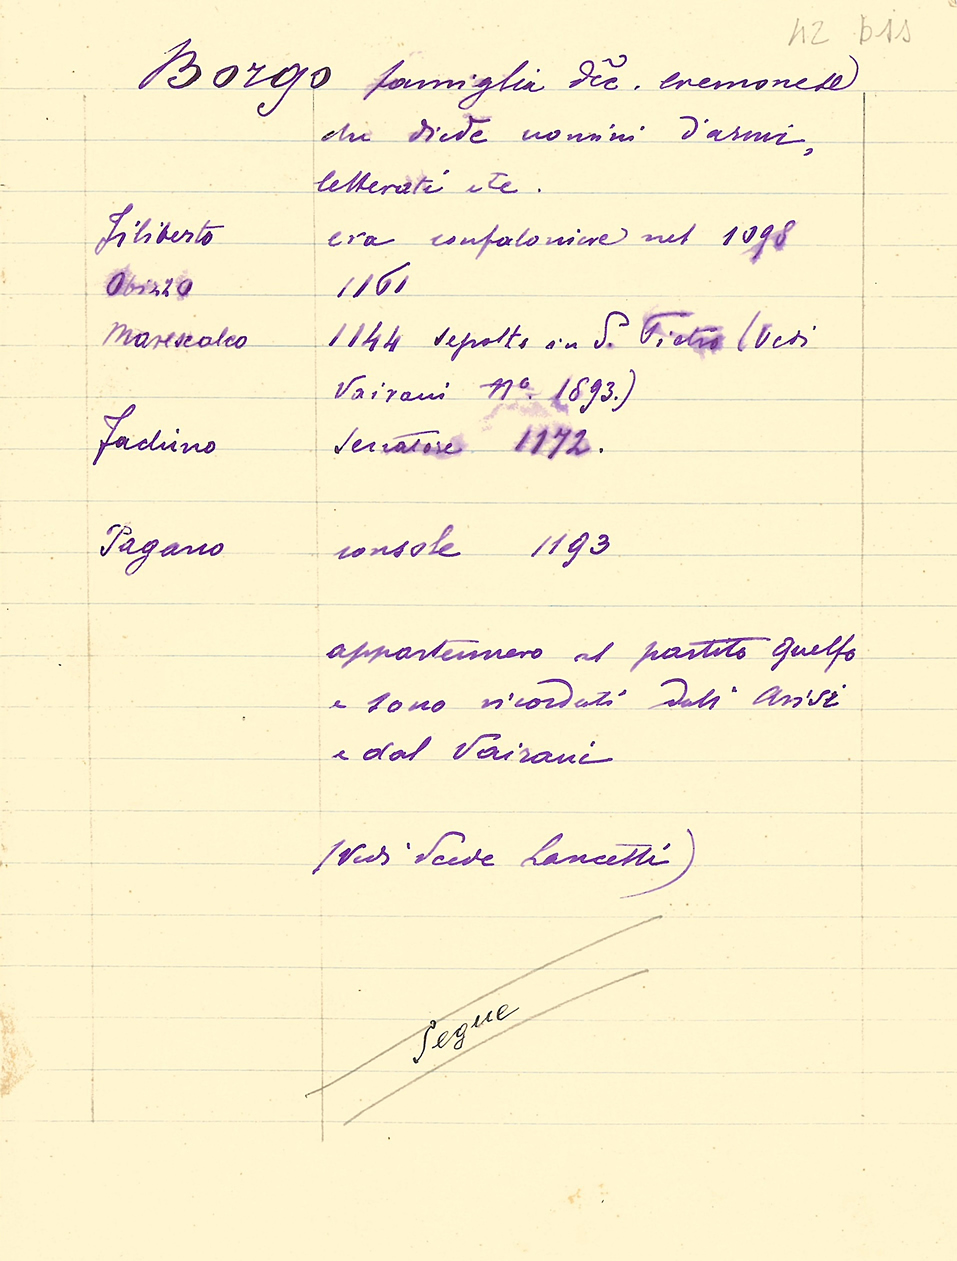 42 bis
Borgo famiglia dec. cremonese
che diede uomini d'armi,
letterati etc.
Filiberto era confaloniere nel 1098
Obizzo 1161
Marescalco 1144 sepolto in S. Pietro (Vedi
Vairani Nº. 1893.)
Fachino Senatore 1172.
Pagano console 1193
appartennero al partito Guelfo
e sono ricordati dall' Arisi
e dal Vairani
(Vedi Scede Lancetti)
Segue